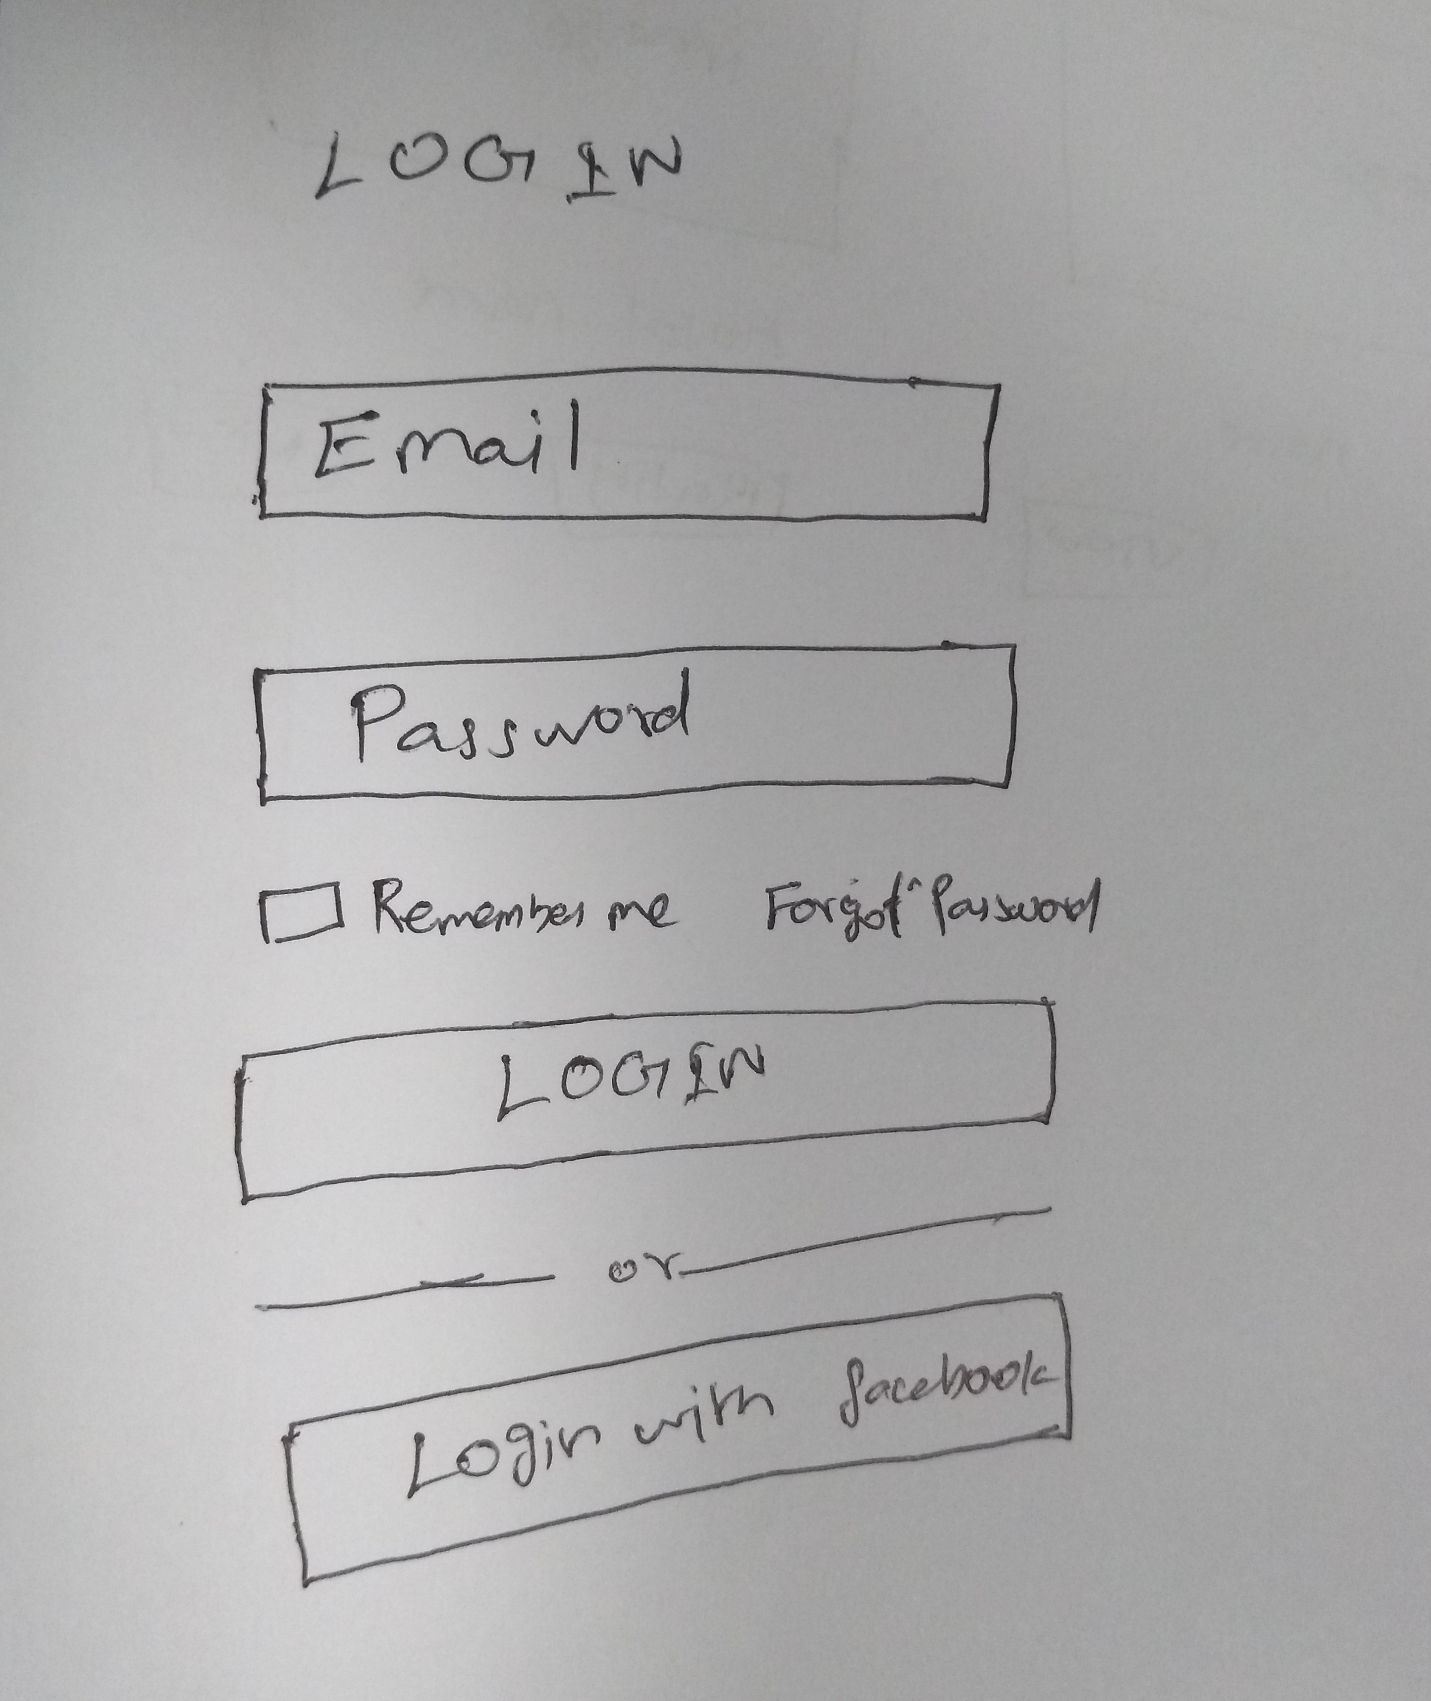 LOGIN
Email
Password
Remember me Forgot Password
LOGIN
or
Login with facebook